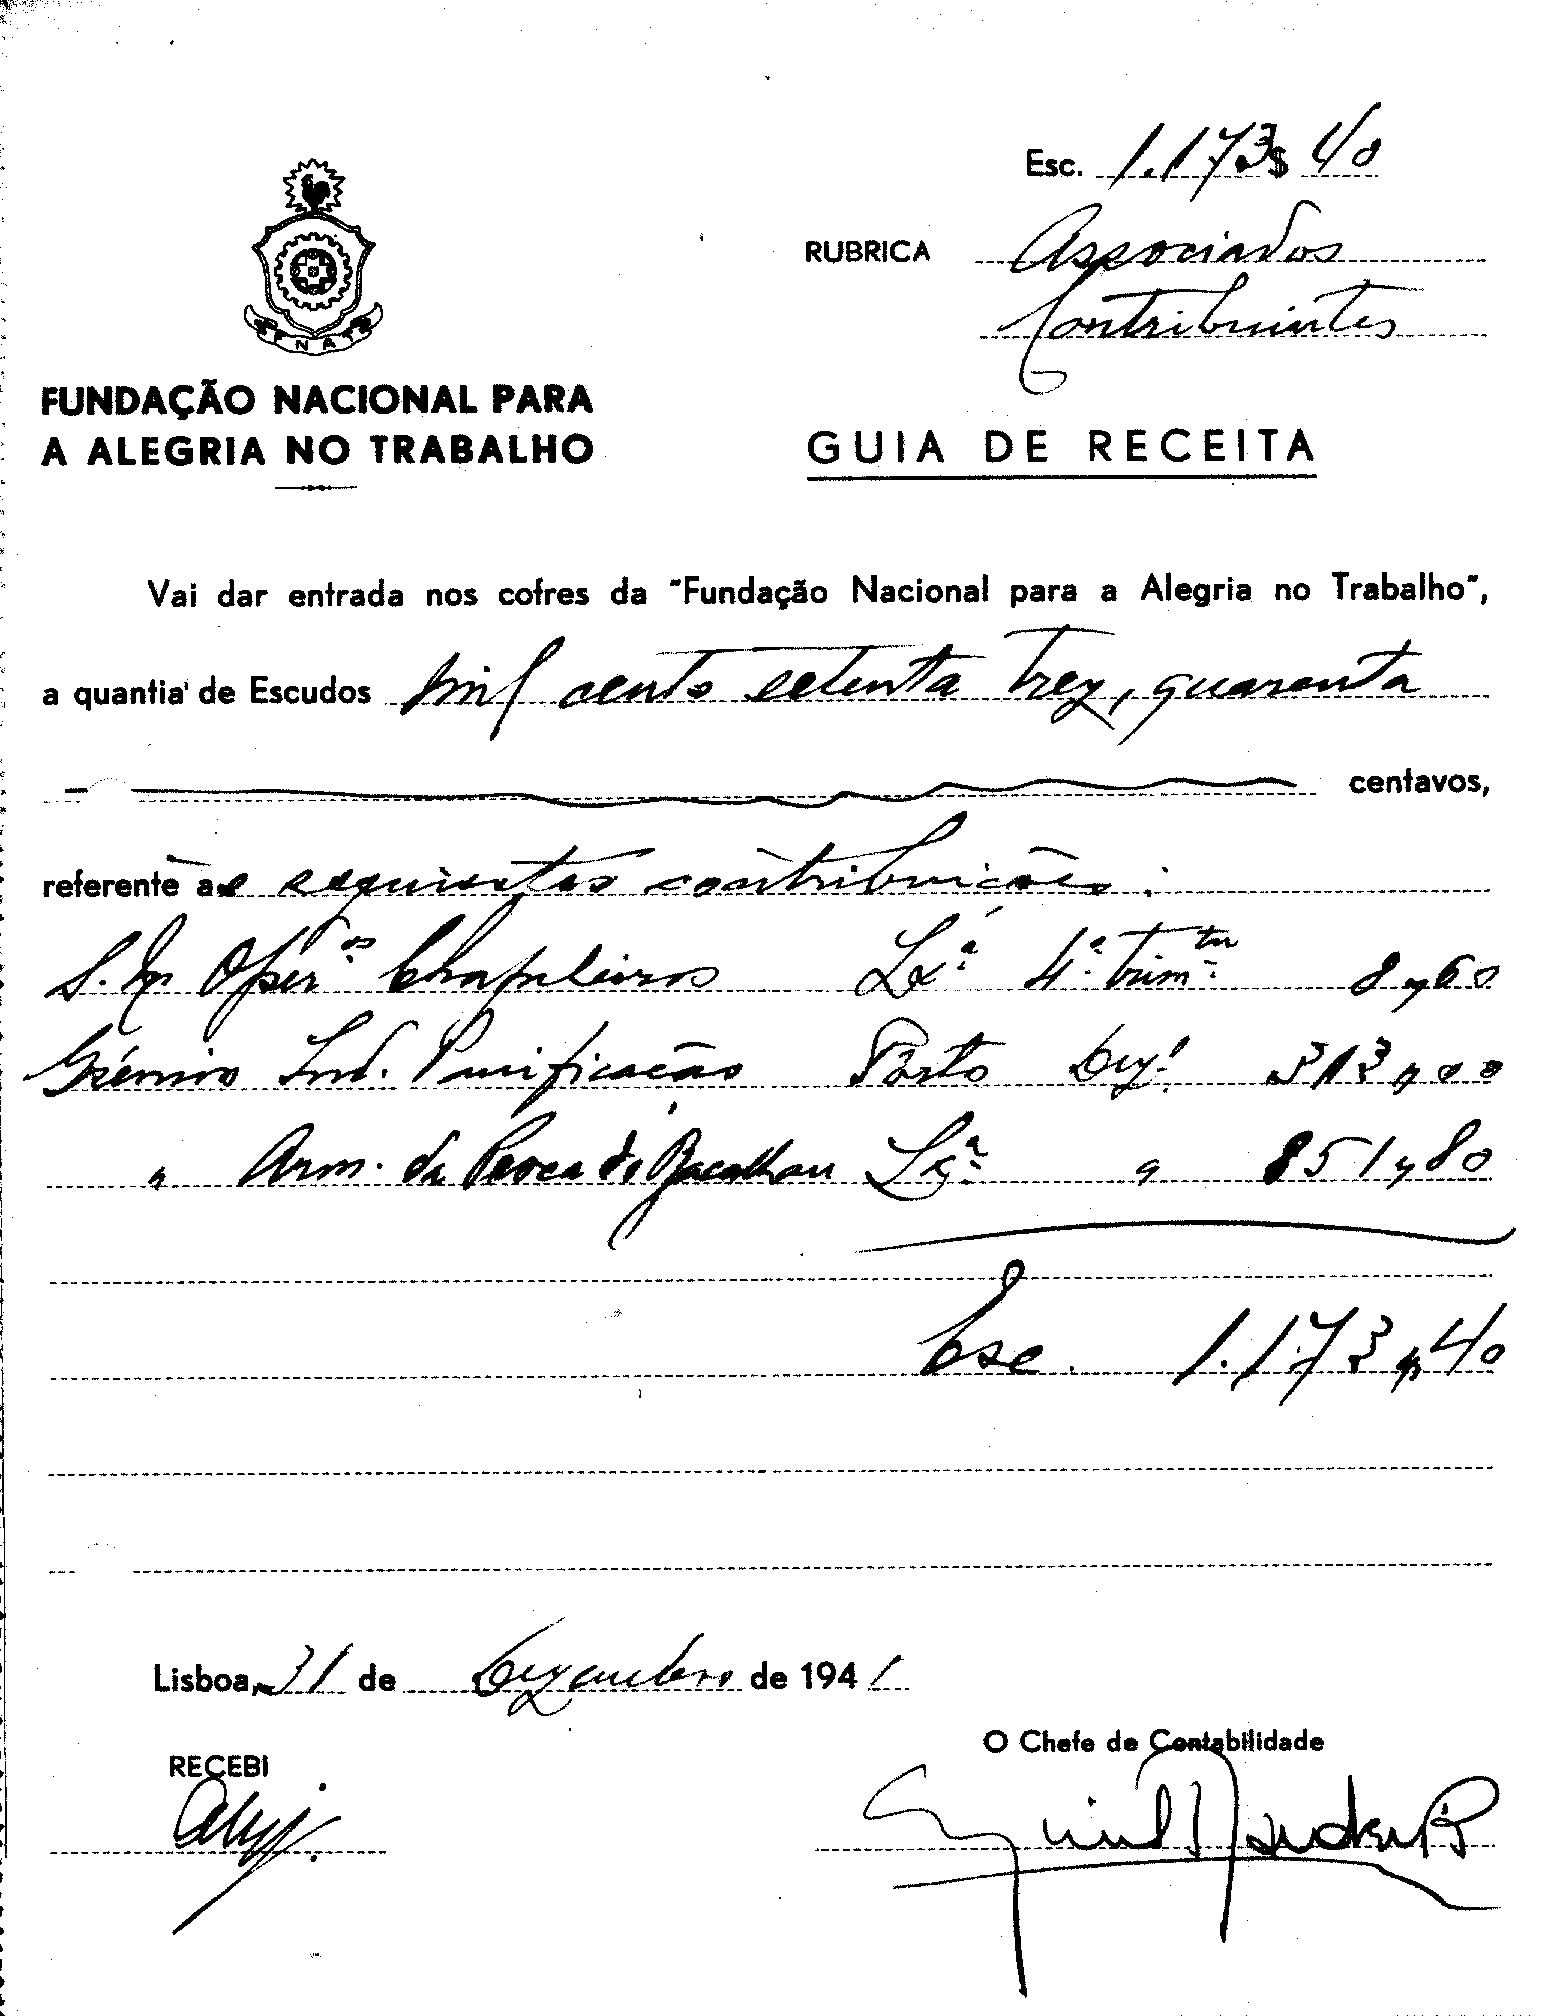 Esc. 1.173$40
RUBRICA Associados
Contribuintes
FNAT
FUNDAÇÃO NACIONAL PARA
A ALEGRIA NO TRABALHO
GUIA DE RECEITA
Vai dar entrada nos cofres da "Fundação Nacional para a Alegria no Trabalho",
a quantia de Escudos mil cento setenta trez, quarenta
centavos,
referente as seguintes contribuições:
S. N. Oper.os Chapeleiros Lx.ª 4.º trim.tre 8,60
Grémio Ind. Panificação Porto Dez! 313,00
" Arm. da Pesca do Bacalhau Lx.ª " 851,80
Esc. 1.173,40
Lisboa, 31 de Dezembro de 1941
RECEBI
O Chefe de Contabilidade